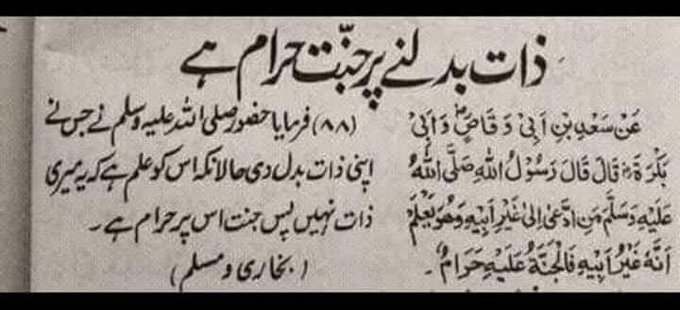 ذات بدلنے پر جنّت حرام ہے
عَنْ سَعْدِ بْنِ اَبِیْ وَقَّاصٍؓ وَاَبِیْ
بَکْرَۃَؓ قَالَ قَالَ رَسُوْلُ اللّٰہِ صَلَّی اللّٰہُ
عَلَیْہِ وَسَلَّمَ مَنِ ادَّعٰی اِلٰی غَیْرِ اَبِیْہِ وَھُوَ یَعْلَمُ
اَنَّہٗ غَیْرُ اَبِیْہِ فَالْجَنَّۃُ عَلَیْہِ حَرَامٌ۔
(۸۸) فرمایا حضور صلی اللہ علیہ وسلم نے جس نے
اپنی ذات بدل دی حالانکہ اس کو علم ہے کہ یہ میری
ذات نہیں پس جنت اس پر حرام ہے۔
(بخاری و مسلم)